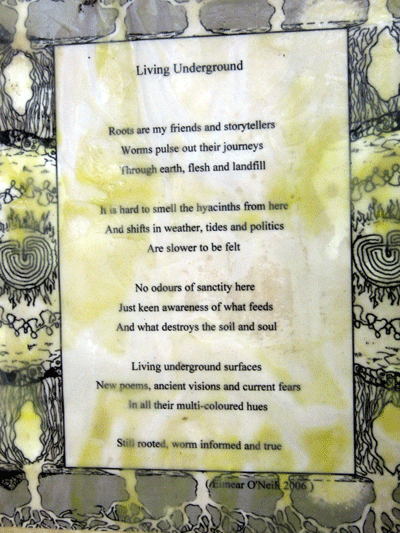 Living Underground
Roots are my friends and storytellers
Worms pulse out their journeys
Through earth, flesh and landfill
It is hard to smell the hyacinths from here
And shifts in weather, tides and politics
Are slower to be felt
No odours of sanctity here
Just keen awareness of what feeds
And what destroys the soil and soul
Living underground surfaces
New poems, ancient visions and current fears
In all their multi-coloured hues
Still rooted, worm informed and true
(Eimear O'Neill 2006 )